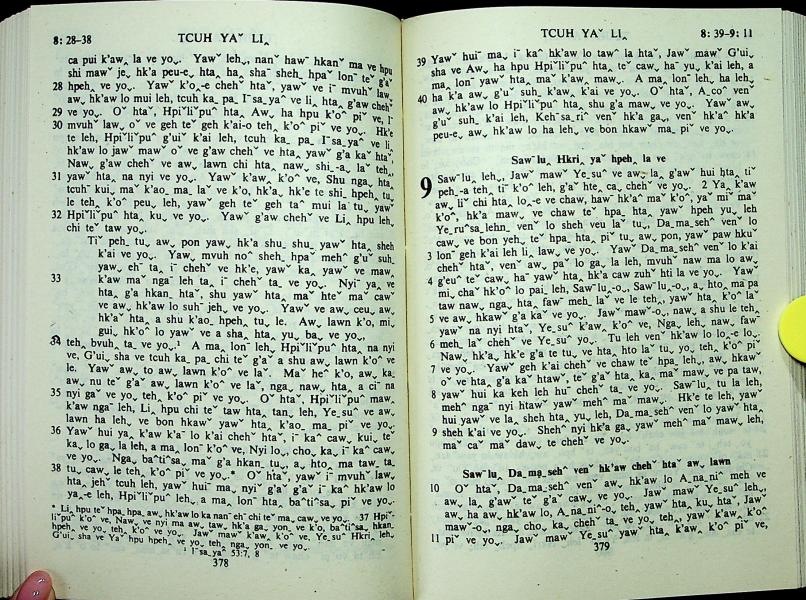 8: 28-38
TCUH YAˇ LIꞈ
ca pui k'awꞈ la ve yoˬ. Yawˇ lehˬ, nanˇ hawˉ hkanˇ ma ve hpu
shi mawˇ jeˬ hk'a peu-e, htaꞈ haˍ shaˉ shehˍ hpaˇ lonˉ teˇ g'aˇ
28 hpehˬ ve yoˬ. Yawˇ k'oꞈ-e chehˇ htaˇ, yawˇ ve iˉ mvuhˇ lawˬ
awˬ hk'aw lo mui leh, tcuh kaˍ paˍ Iˉsaˍyaˆ ve liꞈ htaꞈ g'aw chehˇ
29 ve yoˬ. Oˇ htaˇ, Hpiˇliˇpuˆ htaꞈ Aw ha hpu k'oˆ piˇ ve, Iˉ
30 mvuhˇ lawˬ oˇ ve gehˇ teˇ gehˇ k'ai-o tehꞈ k'oˆ piˇ ve yoˬ. Hk'e
te leh, Hpiˇliˇpuˆ g'uiˇ k'ai leh, tcuh kaˍ paˍ Iˉsaˍyaˆ ve liꞈ
hk'aw lo jawˇ mawˇ oˇ ve g'aw chehˇ ve htaꞈ yawˇ g'a kaˇ htaˇ,
Nawˬ g'aw chehˇ ve awˬ lawn chi htaꞈ nawˬ shiˍ-aˬ laˇ tehꞈ
31 yawˇ htaꞈ na nyi ve yoˬ. Yawˇ k'awꞈ k'oˆ ve, Shu ngaˬ htaꞈ
tcuhˉ kuiˬ maˇ k'ao maˍ laˇ ve k'o, hk'aˬ hk'e te shiˍ hpeh tuˬ
le tehꞈ k'oˆ peuˬ leh, yawˇ geh teˇ gehˇ taˆ mui la tuˬ yawˇ
32 Hpiˇliˇpuˆ htaꞈ kuˬ ve yoˬ. Yawˇ g'aw chehˇ ve Liꞈ hpu leh,
chi teˇ taw yoˬ.
Tiˇ pehˍ tuˬ awˬ pon yawˬ hk'a shuˍ shuˍ yawˇ htaꞈ sheh
k'ai ve yoˬ. Yaw mvuh noˆ shehˍ hpaˇ mehˆ g'uˇ suhˬ
yaw ehˇ taˍ iˉ chehˇ ve hk'e, yawˇ kaˍ yawˇ ve mawˬ
33 k'aw maˇ ngaˉ leh taˍ iˉ chehˇ taˬ ve yoˬ. Nyiˉ yaˬ ve
htaꞈ g'a hkanˍ htaˇ, shu yawˇ htaꞈ maˇ hteˇ maˇ cawˇ
ve awˬ hk'aw lo suhˇ jehˬ ve yoˬ. Yawˇ ve awˬ ceuˬ awˬ
hk'aˇ htaꞈ a shu k'ao hpehꞈ tuˬ le. Awˬ lawn k'o, miˬ
guiˬ hk'oˆ lo yawˇ ve a sha htaꞈ yuˬ baˬ ve yoˬ,
34 tehꞈ bvuhˬ taˬ ve yoˬ.¹ A maˬ lonˉ leh, Hpiˇliˇpuˆ htaꞈ na nyi
ve, G'uiˬ sha ve tcuh kaˍ paˍ chi teˇ g'aˇ a shu awˬ lawn k'oˆ ve
le. Yaw awˬ to awˬ lawn k'oˆ ve laˇ. Maˇ heˆ k'o, awˬ kaˬ
awˬ nu teˇ g'aˇ awˬ lawn k'oˆ ve laˇ, ngaˬ nawˬ htaꞈ a ciˉ na
35 nyi gaˇ ve yoˬ tehꞈ k'oˆ piˇ ve yoˬ. Oˇ htaˇ, Hpiˇliˇpuˆ mawˬ
k'aw ngaˉ leh, Liꞈ hpu chi teˇ taw htaꞈ tanˬ leh, Yeˍsuˆ ve awˬ
lawn ha lehˬ ve bon hkaw yawˇ htaꞈ k'aoˬ maˍ piˇ ve yoˬ.
36 Yawˇ hui yaˬ k'aw k'aˉ lo k'ai chehˇ htaˇ, iˉ kaˆ cawˬ kuiˬ teˇ
kaˬ lo ga la leh, a ma lonˉ k'oˆ ve, Nyi loˬ, choˬ kaˬ iˉ kaˆ cawˬ
38 ve yoˬ. Ngaˬ baˆtiˆsaˬ maˇ g'a hkanˍ tuˬ, aˬ hto ma taw taˍ
tuˬ cawˬ le tehꞈ k'oˆ piˇ ve yoˬ.* Oˇ htaˇ, yawˇ iˉ mvuhˇ lawˬ
htaꞈ jehˇ tcuh leh, yawˇ huiˉ maˬ nyiˇ g'aˇ g'aˇ iˉ kaˆ hk'aw lo
yaˬ-e leh, Hpiˇliˇpuˆ lehˬ a maˬ lonˉ htaꞈ baˆtiˆsaˬ piˇ ve yoˬ.
* Liꞈ hpu teˇ hpaˍ hpaˍ awˬ hk'aw lo ka nanˉ ehˇ chi teˇ maˍ cawˬ ve yoˬ. 37 Hpiˇ-
liˇpuˆ k'oˆ ve, Nawˬ ve nyi ma awˬ tawˬ hk'a gaˬ yonˬ ve k'o, baˆtiˆsaˬ hkanˍ
hpehˬ ve yoˬ, tehꞈ k'oˆ ve yoˬ. Jawˇ mawˇ k'awꞈ k'oˆ ve, Yeˍsuˆ Hkriˬ lehˬ
G'uiˬ sha ve Yaˇ hpu hpehˬ ve yoˬ tehꞈ ngaˬ yonˬ ve yoˬ.
¹ Iˉsaˍyaˆ 53:7, 8
378
TCUH YAˇ LIꞈ
8: 39-9: 11
39 Yawˇ huiˉ maˬ iˉ kaˆ hk'aw lo tawˇ la htaˇ, Jawˇ mawˇ G'uiˬ
sha ve Awˬ ha hpu Hpiˇliˇpuˆ htaꞈ teˇ cawꞈ haˉ yuˬ k'ai leh, a
maˬ lonˉ yawˇ htaꞈ maˇ k'aw mawˬ. A maˬ lonˉ lehˬ ha leh
40 ha k'a awˬ g'uˇ suhˬ k'awˬ k'ai ve yoˬ. Oˇ htaˇ, Aˬcoˆ venˇ
awˬ hk'aw lo Hpiˇliˇpuˆ htaꞈ shu g'a mawˬ ve yoˬ. Yawˇ awˬ
g'uˇ suhˬ k'ai leh, Kehˉsaˍriˆ venˇ hk'a gaˬ, venˇ hk'aˆ hk'a
peu-e, awˬ hk'aw lo ha lehˬ ve bon hkawˇ maˍ piˇ ve yoˬ.
Sawˉluˬ Hkriˬ yaˇ hpehˬ la ve
9 Sawˉluˬ lehˬ, Jawˇ mawˇ Yeˍsuˆ ve awˬ laˬ g'awˇ hui htaꞈ tiˇ
pehˍ-a tehꞈ tiˇ k'oˆ leh, g'aˇ hteꞈ caˬ chehˇ ve yoˬ. 2 Yaˬ k'aw
awˬ liˇ chi htaꞈ loˍ-e ve chaw, hawˉ hk'aˆ maˇ k'oˆ, yaˇ miˉ maˇ
k'oˆ, hk'a mawˬ ve chaw teˇ hpaˍ htaꞈ yawˇ hpeh yuˬ leh
Yeˍruˆsaˍlehnˬ venˇ lo sheh veu la tuˬ, Daˍmaˍsehˆ venˇ lo
cawˬ ve bon yehˬ teˇ hpaˍ htaꞈ piˇ tuˬ awˬ ponˬ yawˇ paw hkuˇ
3 lonˉ geh k'ai leh liꞈ lawˬ ve yoˬ. Yawˇ Daˍmaˍsehˆ venˇ lo k'ai
chehˇ htaˇ, venˇ awˬ paˇ lo gaˬ la leh, mvuhˇ naw ma lo awˬ
4 g'euˆ teˇ cawꞈ haˉ yawˇ htaꞈ hk'a caw zuhˇ hti la ve yoˬ. Yawˇ
miˬ chaˇ hk'oˆ lo paiˬ leh, Sawˉluˬ-oˬ, Sawˉluˬ-oˬ, aˬ htoˬ ma pa
taw nawˬ ngaˬ htaꞈ fawˇ mehˬ laˇ ve le tehꞈ, yawˇ htaꞈ k'oˆ laˇ
5 ve awˬ hkawˇ g'a kaˇ ve yoˬ. Yawˇ, Jawˇ mawˇ-oˬ, nawˬ a shu le tehꞈ
yawˇ na nyi htaˇ, Yeˍsuˆ k'awꞈ k'oˆ ve, Ngaˬ lehˬ nawˬ fawˇ
6 mehˬ laˇ chehˇ ve Yeˍsuˆ yoˬ. Tu leh venˇ hk'aw lo loˍ-e loˬ.
Nawˬ hk'aˬ hk'e g'a te tuˬ ve htaꞈ hto laˇ tuˬ yoˬ tehꞈ k'oˆ piˇ
7 ve yoˬ. Yawˇ geh k'ai chehˇ ve chaw teˇ hpaˍ lehˬ, awˬ hkawˇ
oˇ ve htaꞈ g'a kaˇ htawˇ, teˇ g'aˇ htaꞈ kaˬ maˇ mawˬ ve pa taw,
8 yawˇ hui ka keh leh huˉ chehˇ taˍ ve yoˬ. Sawˉluˬ tu la leh,
mehˆ ngaˉ nyi htawˇ yawˇ mehˆ maˇ mawˬ. Hk'e te leh, yawˇ
hui yawˇ ve laˬ sheh htaꞈ yuˬ leh, Daˍmaˍsehˆ venˇ lo yawˇ htaꞈ
9 sheh k'ai ve yoˬ. Shehˆ nyi hk'a gaˬ yawˇ mehˆ maˇ mawˬ leh,
maˇ caˇ maˇ dawˬ te chehˇ ve yoˬ.
Sawˉluˬ Daˍmaˍsehˆ venˇ hk'aw chehˇ htaˇ awˬ lawn
10 Oˇ htaˇ, Daˍmaˍsehˆ venˇ awˬ hk'aw lo Aˍnaˍniˆ meh ve
awˬ laˬ g'awˇ teˇ g'aˇ cawˬ ve yoˬ. Jawˇ mawˇ Yeˍsuˆ lehˬ,
awˬ ha awˬ hk'aw lo, Aˍnaˍniˆ-oˬ tehꞈ yawˇ htaꞈ kuˬ htaˇ, Jawˇ
mawˇ-oˬ, ngaˬ choˬ kaˬ chehˇ taˍ ve yoˬ tehꞈ, yawˇ k'awꞈ k'oˆ
11 piˇ ve yoˬ. Jawˇ mawˇ Yeˍsuˆ yawˇ htaꞈ k'awꞈ k'oˆ piˇ ve,
379